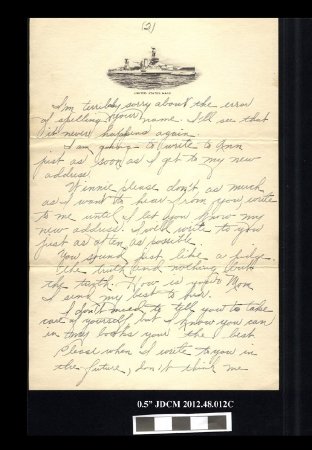 (2)
UNITED STATES NAVY
I'm terribly sorry about the error
of spelling your name. I'll see that
it never happens again.
I am going to write to Ann
just as soon as I get to my new
address.
Winnie please don't as much
as I want to hear from you write
to me until I let you know my
new address. I will write to you
just as often as possible.
You sound just like a judge.
The truth and nothing but
the truth. How is your Mom
I send my best to her.
I don't need to tell you to take
care of yourself, but I know you can
in my books your the best
Please when I write to you in
the future, don't think me
0.5" JDCM 2012.48.012C